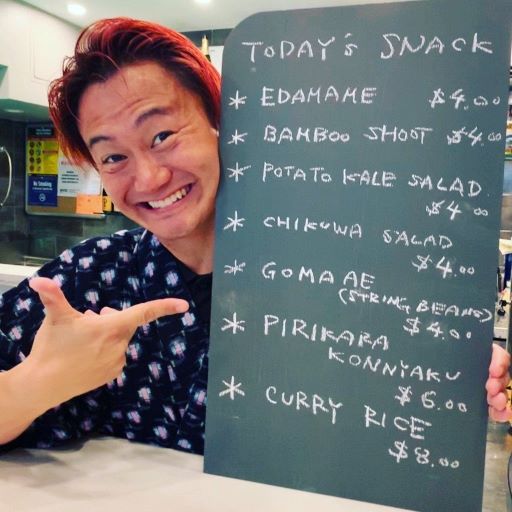 TODAY'S SNACK
* EDAMAME $4.00
* BAMBOO SHOOT $4.00
* POTATO KALE SALAD.
$4.00
* CHIKUWA SALAD
$4.00
* GOMA AE
(STRING BEANS)
$4.00
* PIRIKARA
KONNYAKU
$6.00
* CURRY RICE
$8.00
No Smoking